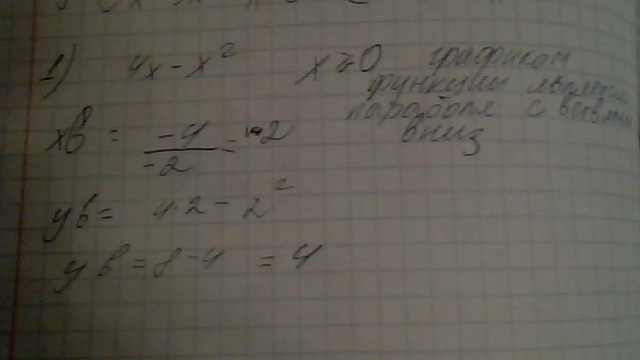 1) 4x - x² x ≥ 0 графиком
функции является
парабола с ветвями
вниз
xв = -4/-2 = 2
yв = 4·2 - 2²
yв = 8 - 4 = 4